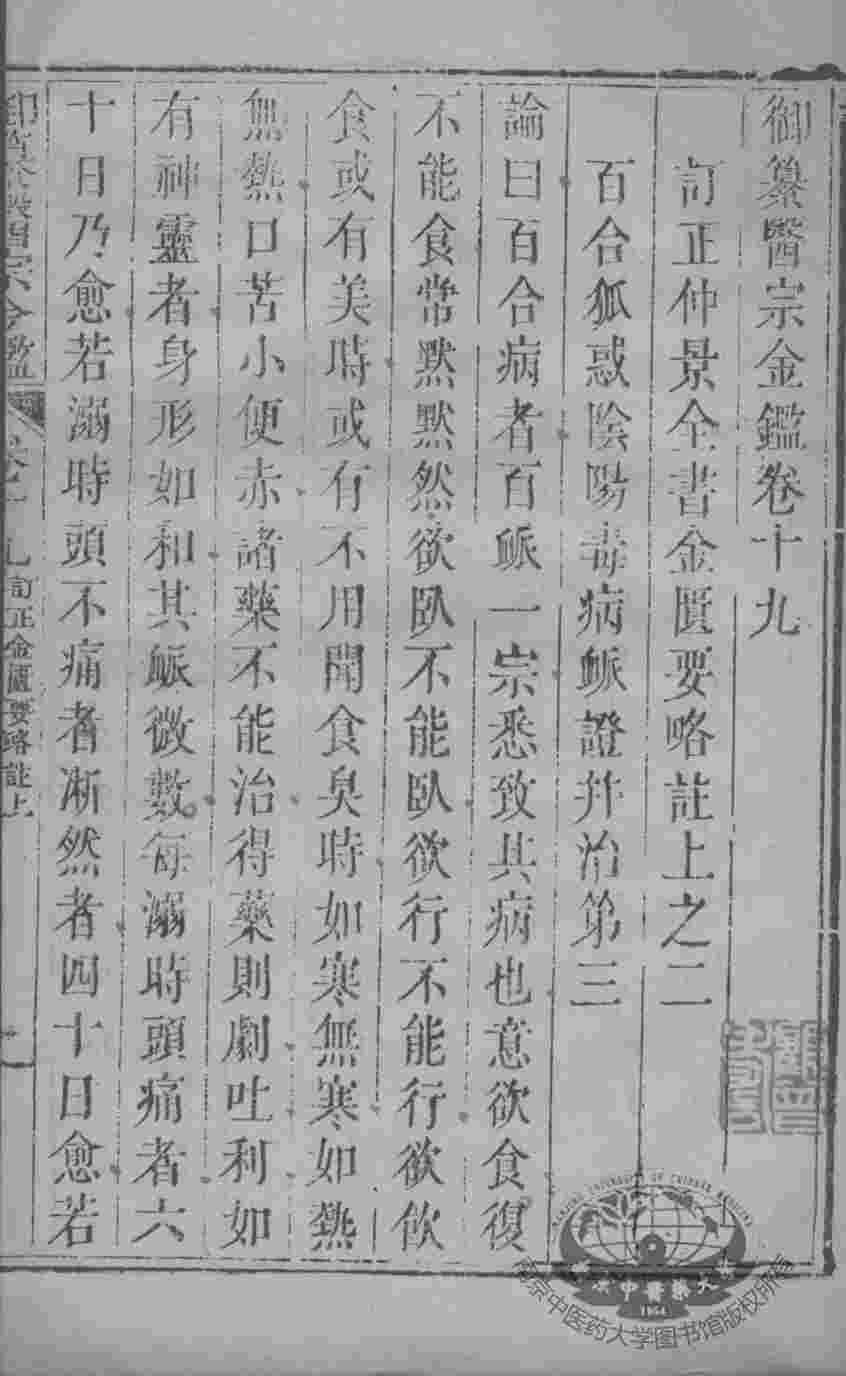 御纂醫宗金鑑卷十九
訂正仲景全書金匱要略註上之二
百合狐惑陰陽毒病脈證并治第三
論曰百合病者百脈一宗悉致其病也意欲食復
不能食常默默然欲臥不能臥欲行不能行欲飲
食或有美時或有不用聞食臭時如寒無寒如熱
無熱口苦小便赤諸藥不能治得藥則劇吐利如
有神靈者身形如和其脈微數每溺時頭痛者六
十日乃愈若溺時頭不痛者淅然者四十日愈若
醫宗金鑑 卷十九 訂正金匱要略註上
一
NANJING UNIVERSITY OF CHINESE MEDICINE
南京中醫藥大學
1954
南京中医药大学图书馆版权所有